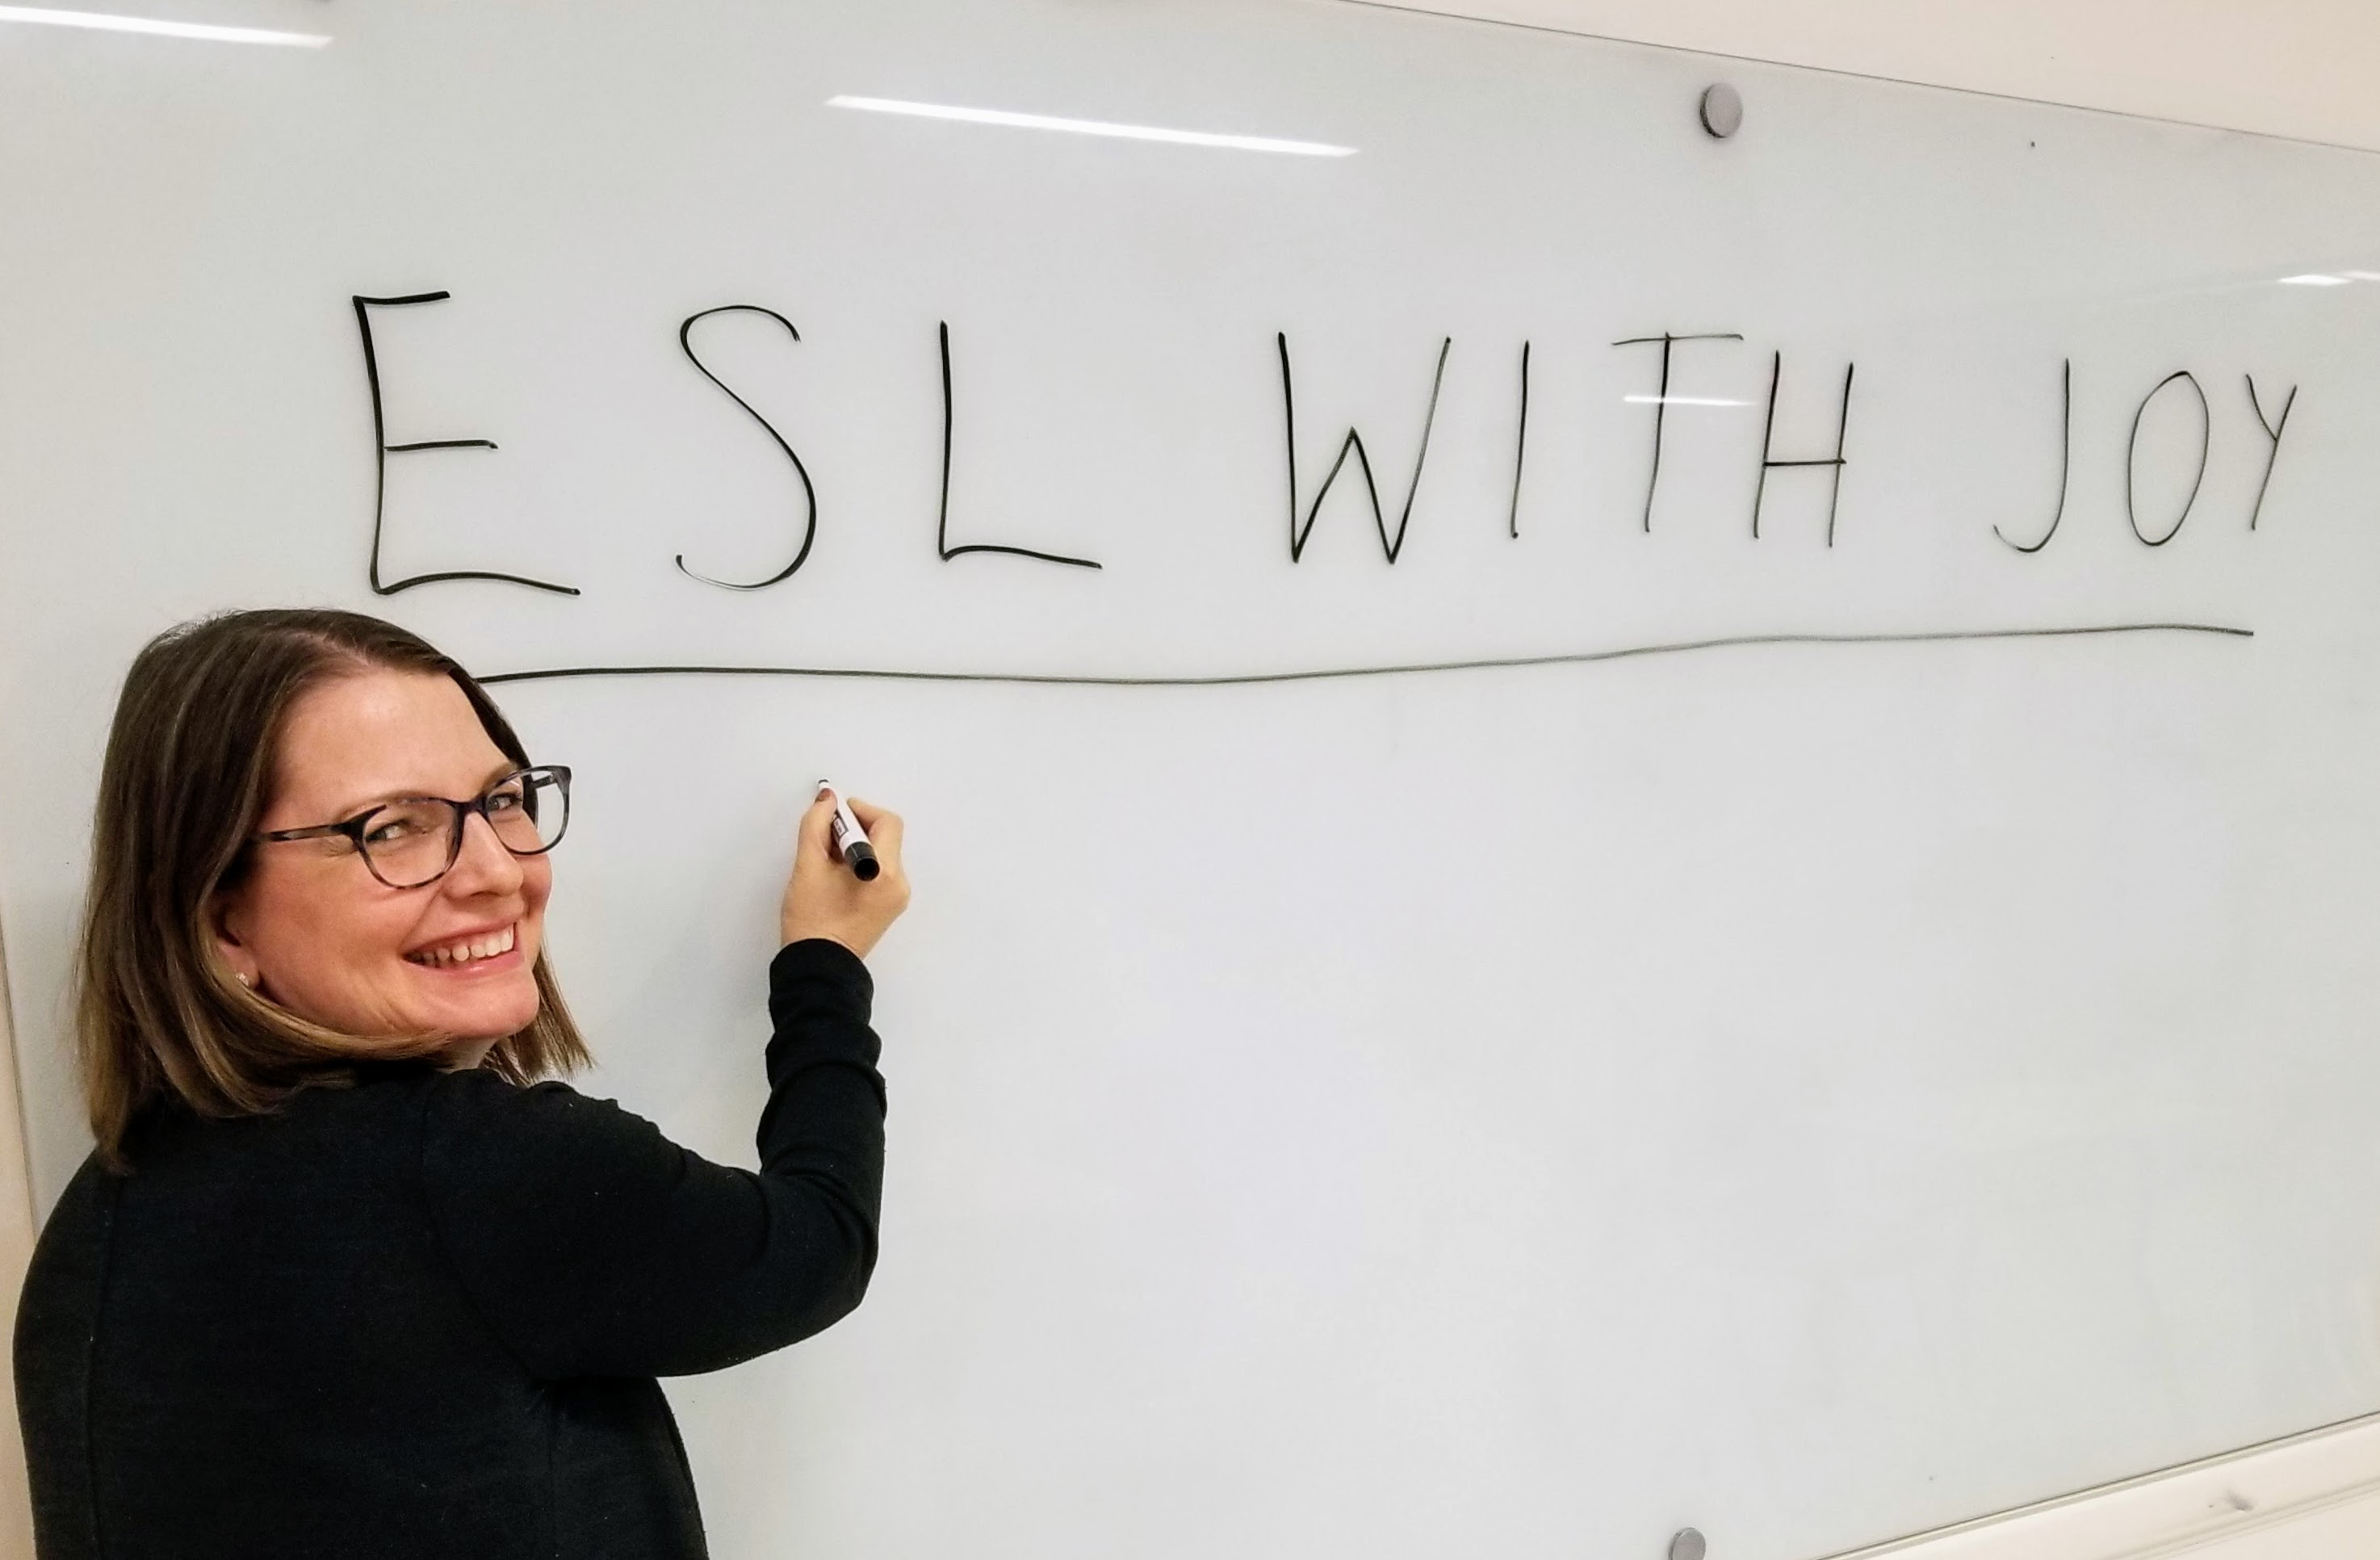 ESL WITH JOY